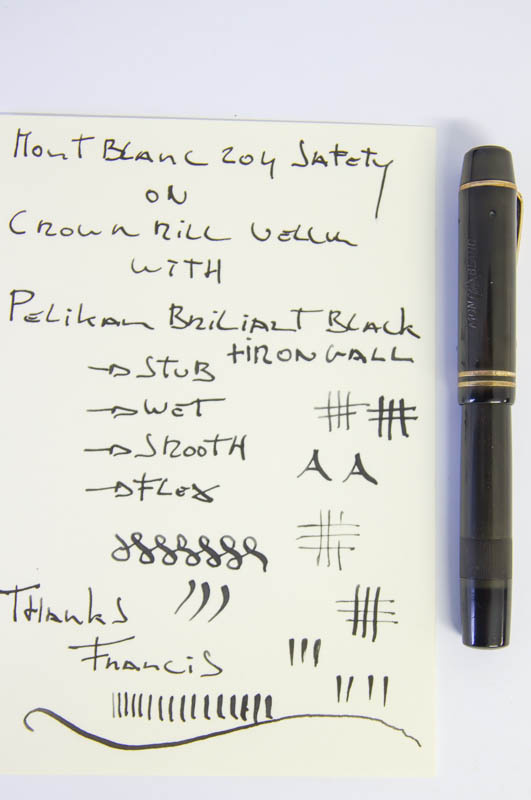 MONTBLANC 204 SAFETY
ON
CROWN MILL VELLUM
WITH
PELIKAN BRILIANT BLACK
+IRONGALL
→STUB
→WET
→SMOOTH
→FLEX
A A
THANKS
FRANCIS